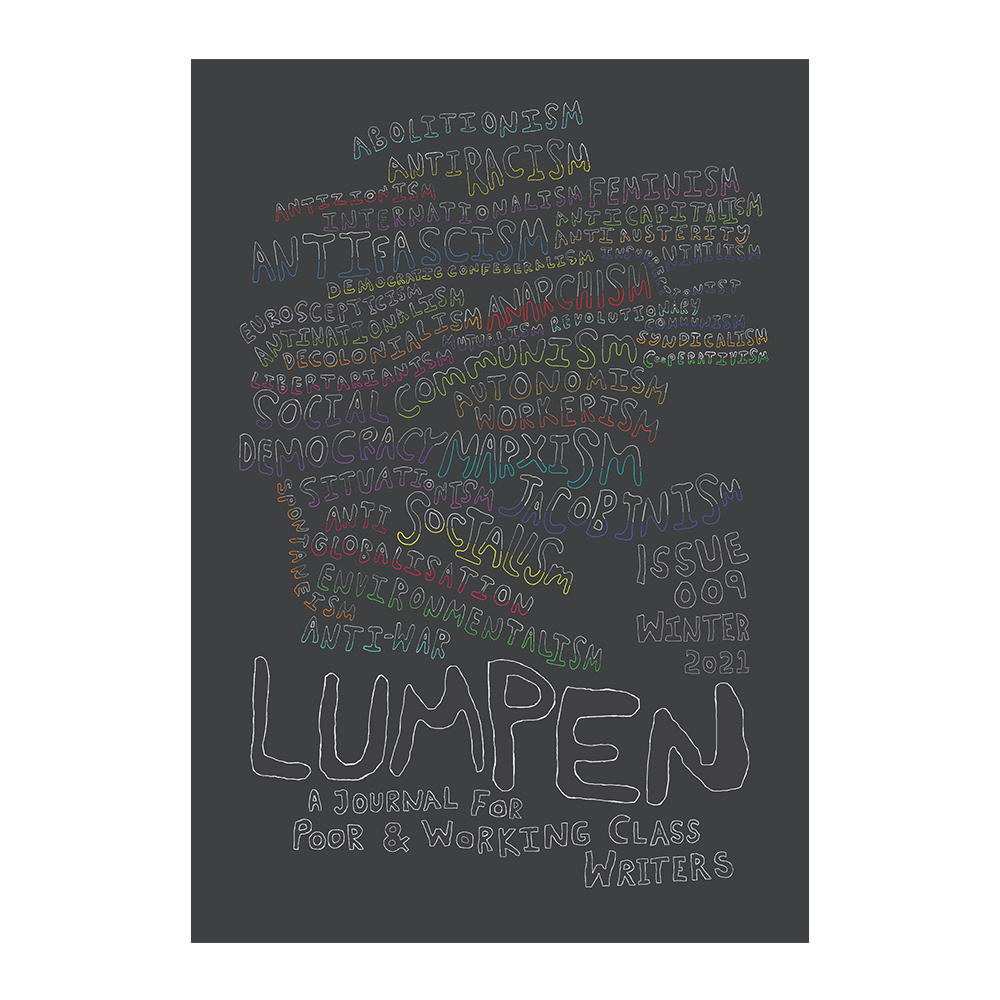 ABOLITIONISM
ANTIRACISM
ANTIZIONISM
INTERNATIONALISM
FEMINISM
ANTICAPITALISM
ANTIFASCISM
ANTIAUSTERITY
INSURRECTIONIST
NIHILISM
DEMOCRATIC CONFEDERALISM
EUROSCEPTICISM
ANTINATIONALISM
DECOLONIALISM
ANARCHISM
MUTUALISM
REVOLUTIONARY
COMMUNISM
SYNDICALISM
COOPERATIVISM
LIBERTARIANISM
COMMUNISM
AUTONOMISM
WORKERISM
SOCIAL
DEMOCRACY
MARXISM
SPONTANEISM
SITUATIONISM
JACOBINISM
ANTI
GLOBALISATION
SOCIALISM
ENVIRONMENTALISM
ANTI-WAR
ISSUE
009
WINTER
2021
LUMPEN
A JOURNAL FOR
POOR & WORKING CLASS
WRITERS